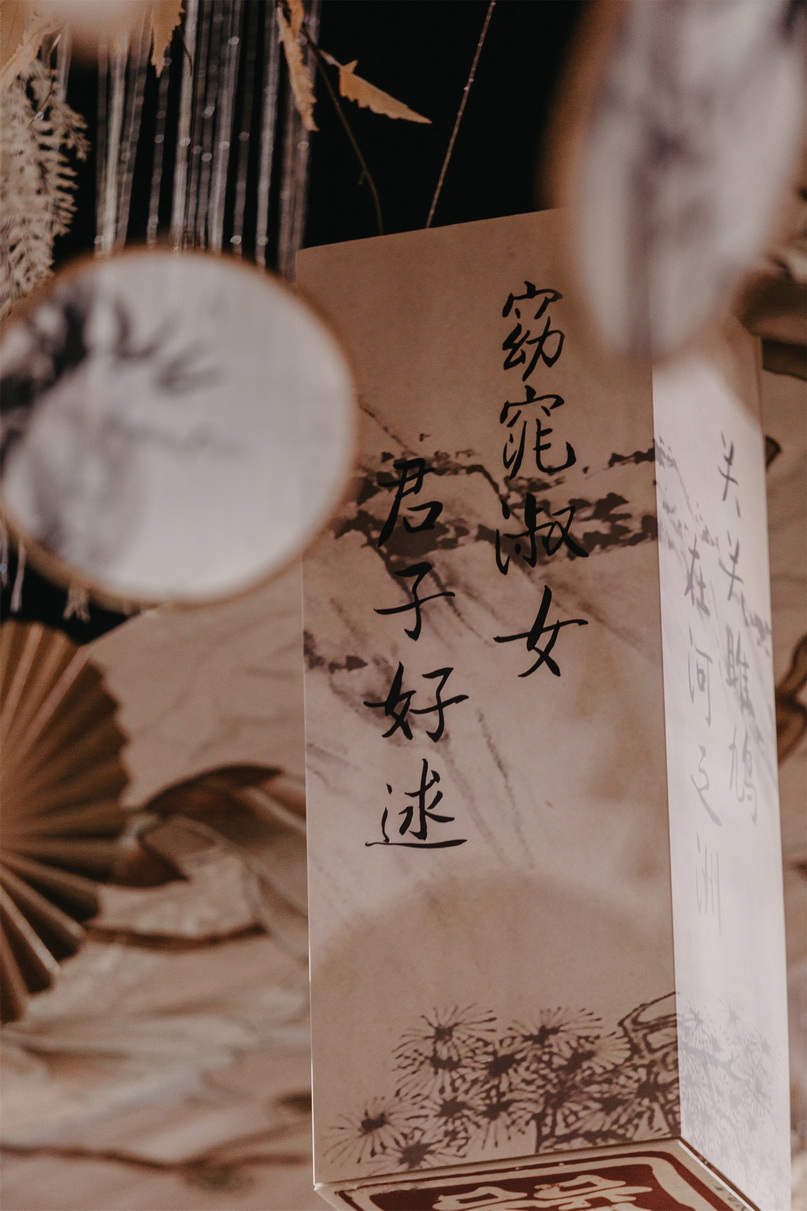 窈窕淑女
君子好逑
关关雎鸠
在河之洲